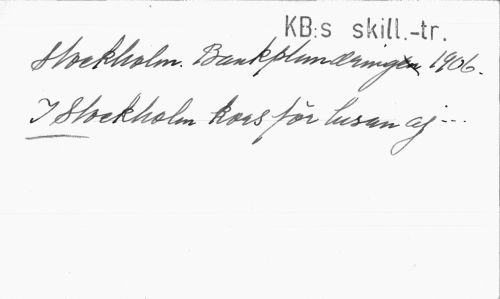 KB:s skill.-tr.
Stockholm. Bankplundringen 1906.
I Stockholm kors för lusan aj ---